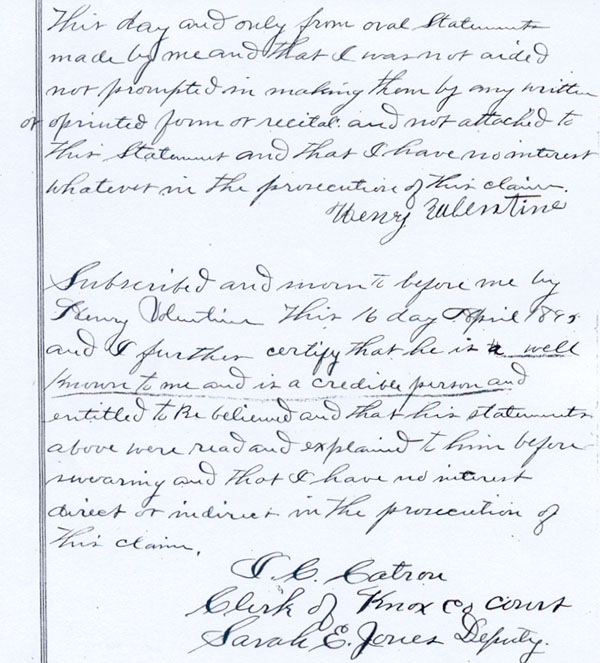 This day and only from oral Statements
made by me and that I was not aided
not prompted in making them by any written
or oprinted form or recital and not attached to
This Statement and that I have no interest
whatever in the prosecution of this claim.
Henry Valentine
Subscribed and sworn to before me by
Henry Valentine This 16 day April
and I further certify that he is well
known to me and is a credible person and
entitled to Be believed and that his statements
above were read and explained to him before
swearing and that I have no interest
direct or indirect in the prosecution of
This claim.
I. C. Catron
Clerk of Knox Co Court
Sarah E. Jones Deputy.